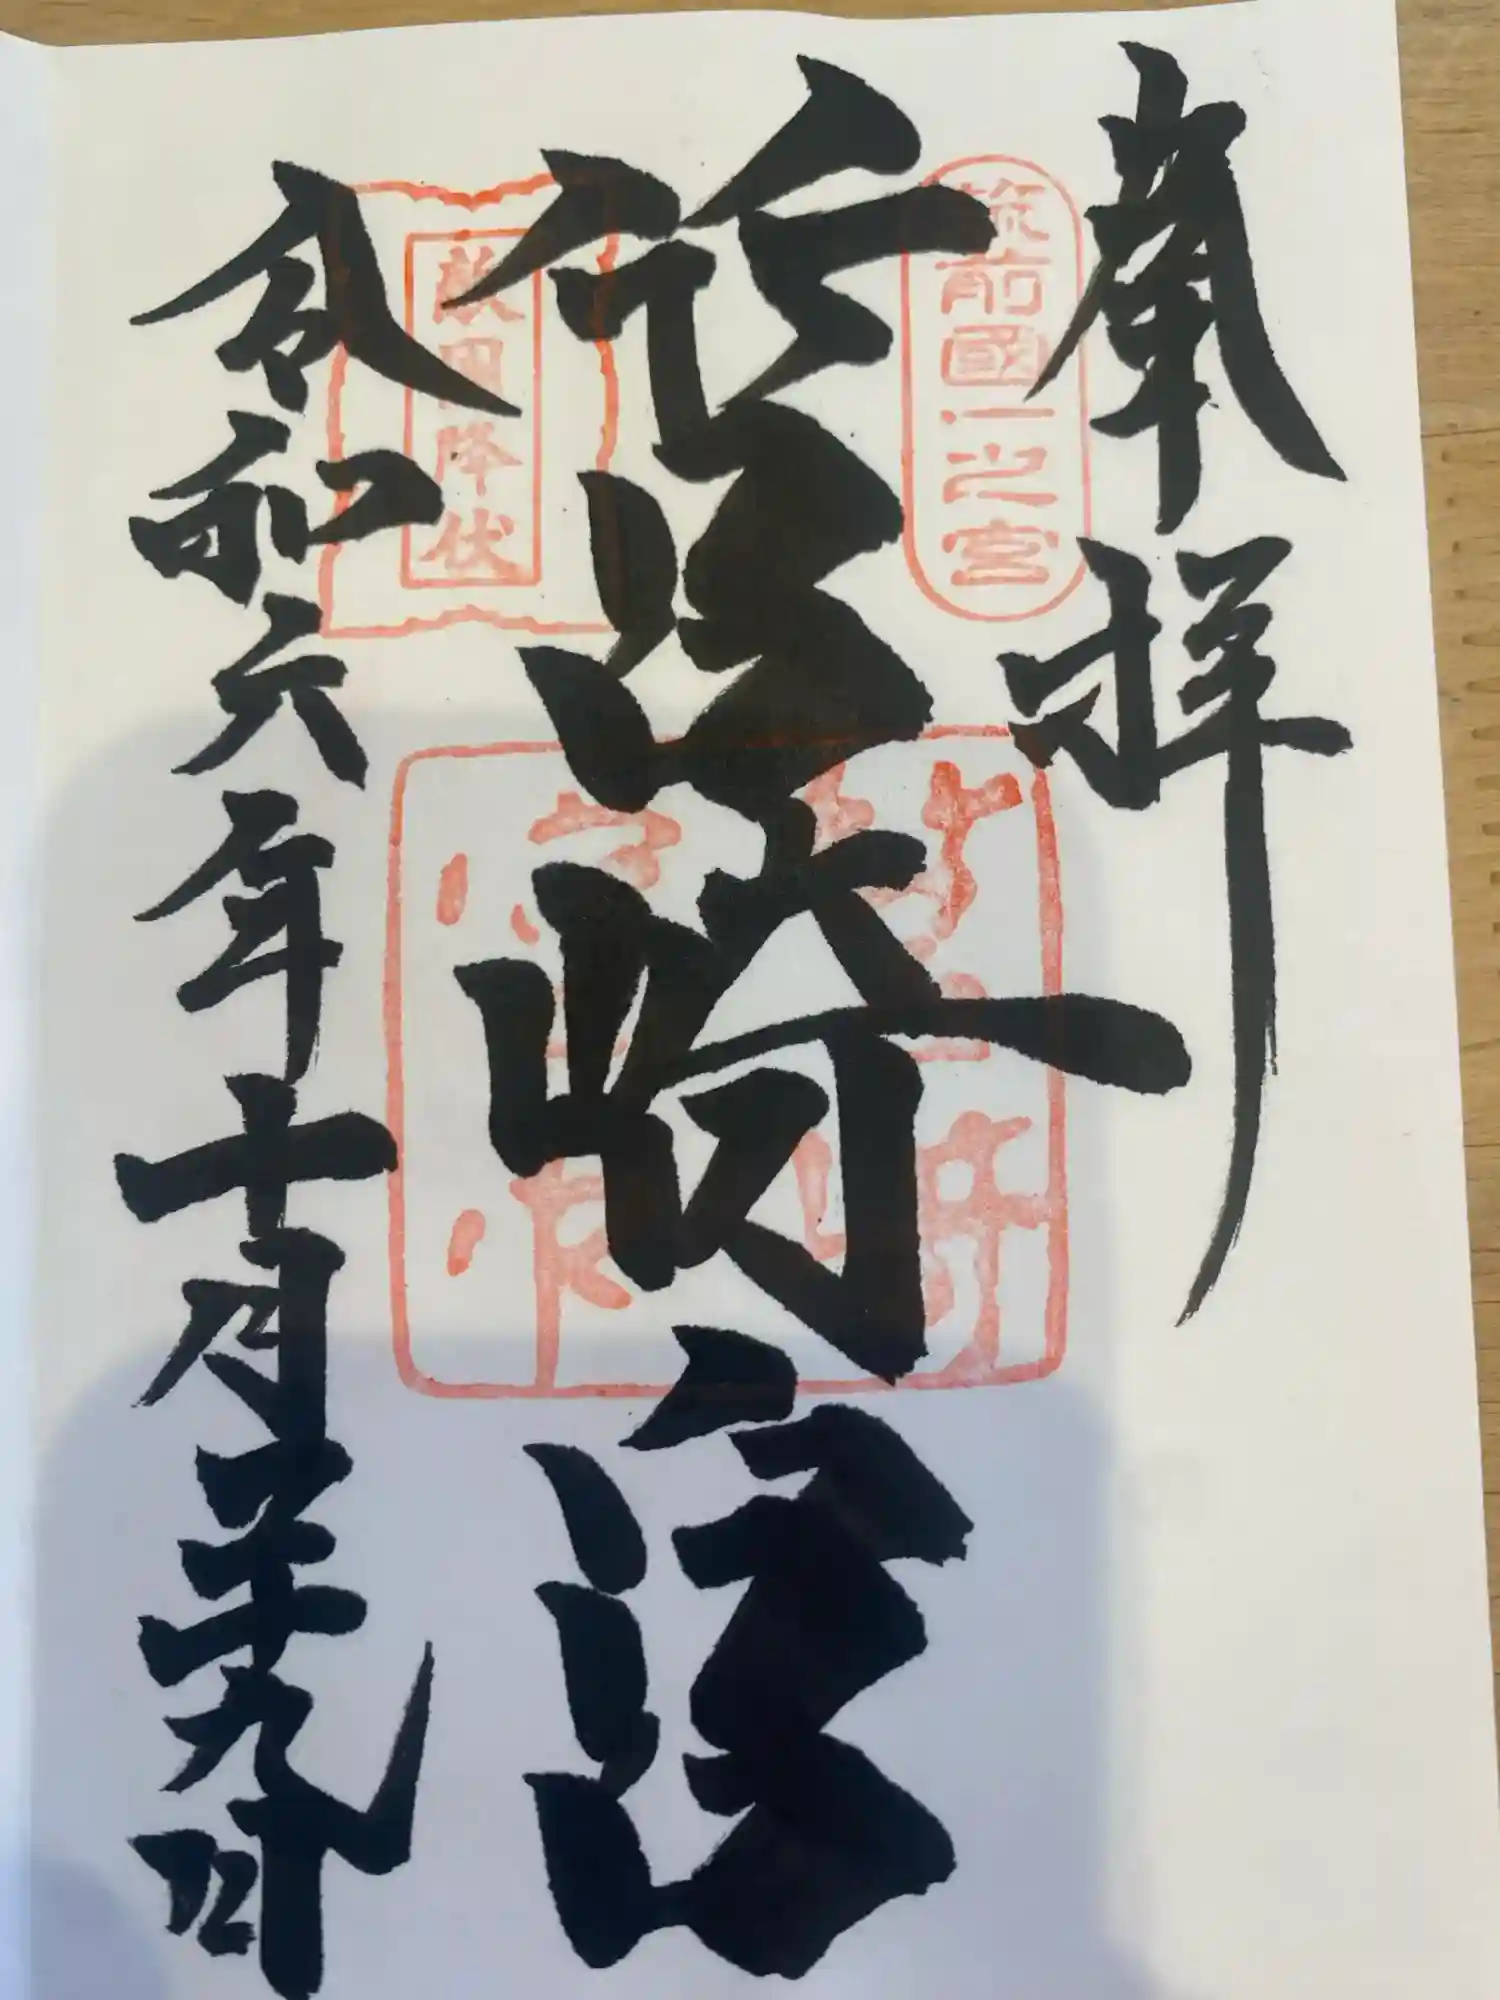 奉拝
筑前國一之宮
筥崎宮
敵国降伏
令和六年十月二十九日